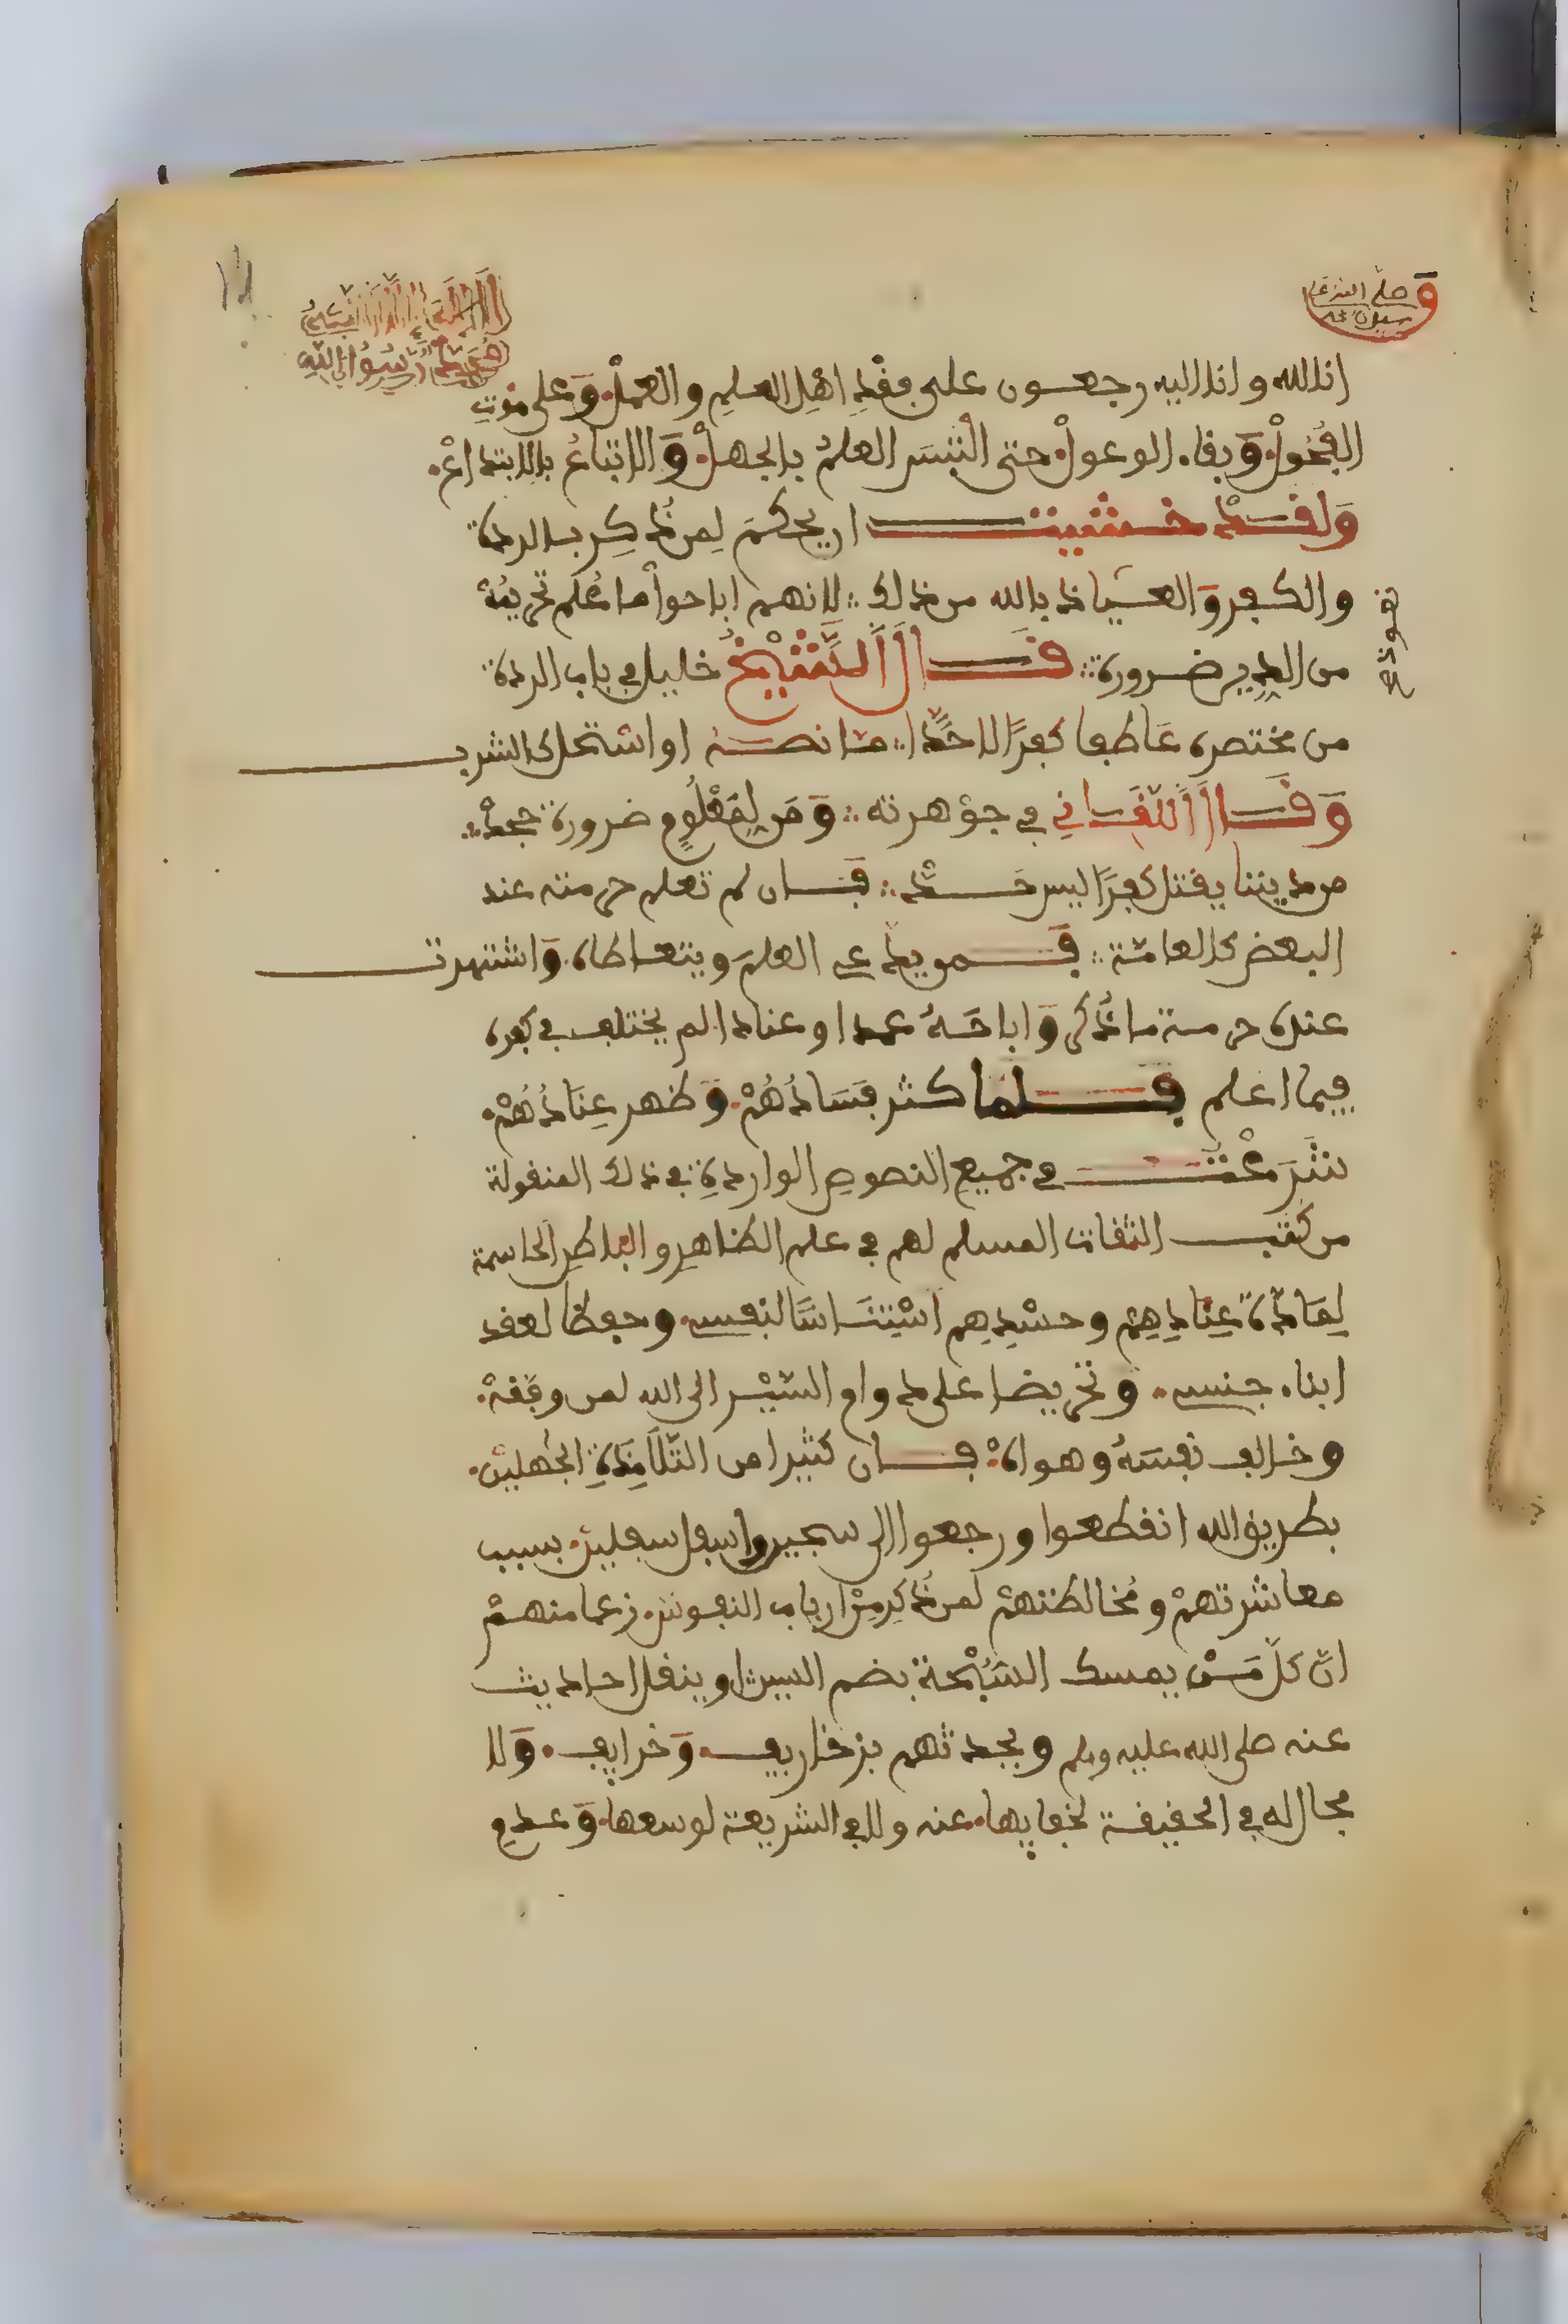 و صلى الله على سيدنا محمد
لا إله إلا الله
محمد رسول الله
انا لله وانا اليه رجعون على فقد اهل العلم والعمل وعلى موت
الفحول وبقاء الوعول حتى التبس العلم بالجهل والاتباع بالابتداع
ولقد خشيت ان يحكم لمن ذكر بالردة
والكفر والعياذ بالله من ذلك لانهم اباحوا ما علم تحريمه
من الدين ضرورة قال الشيخ خليل في باب الردة
من مختصره عاطفا كفرا لا حدا ما نصه او استحل كالشرب
وقال اللقاني في جوهرته ومن لمعلوم ضرورة جحد
من ديننا يقتل كفرا ليس حد فان لم تعلم حرمته عند
البعض كالعامة فمن يدعي العلم ويتعاطاه واشتهرت
عنده حرمة ما ذكر واباحه عمدا او عنادا لم يختلف في كفره
فيما اعلم فلما كثر فسادهم وظهر عنادهم
شرعت في جميع النصوص الواردة في ذلك المنقولة
من كتب الثقات المسلم لهم في علم الظاهر والباطن الحاسمة
لمادة عنادهم وحسدهم استيناسا لنفسه وحفظا لعقد
ابناء جنسه وتحريضا على دوام السير الى الله لمن وفقه
وخالف نفسه وهواه فان كثيرا من التلامذة الجهلين
بطريق الله انقطعوا ورجعوا الى سجين واسفل سفلين بسبب
معاشرتهم ومخالطتهم لمن ذكر من ارباب النفوس زعما منهم
ان كل من يمسك السبحة بضم السين او ينقل احاديث
عنه صلى الله عليه وسلم ويحدثهم بزخاريف وخرايف ولا
مجال له في الحقيقة لخفايها عنه ولا في الشريعة لوسعها وعدم